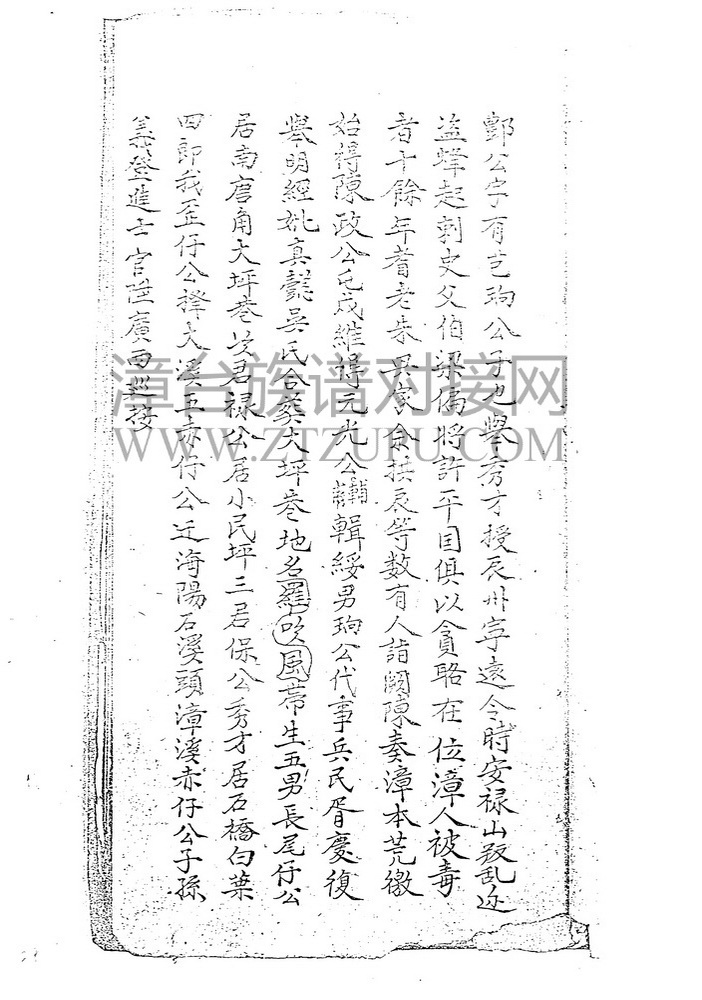 酆公字有芑珦公子也舉秀才授辰州寧遠令時安禄山叛乱
盗蜂起刺史父伯梁儒將許平国俱以貪賂在位漳人被毒
者十餘年耆老朱 余拱辰等数有人詣闕陳奏漳本荒徼
始得陳政公屯戍維得元光公輔輯綏男珦公代事兵民胥慶復
舉明經妣真懿吴氏合葬大坪巷地名羅吹風帶生五男長尾仔公
居南唐角大坪巷 君禄公居小民坪三君保公秀才居石橋白葉
四郎我歪仔公擇大溪五赤仔公迁海陽石溪頭漳溪赤仔公子孫
義登進士官 廣西巡按
漳台族谱对接网
WWW.ZTZUPU.COM